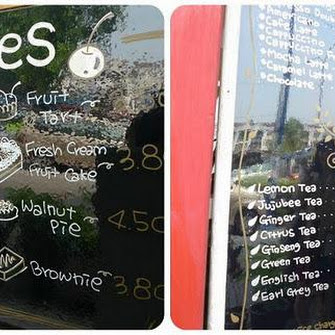 es
Fruit
Tart
Fresh Cream 3.8
Fruit Cake
Walnut 4.50
Pie
Brownie 3.80
Americano
Cafe Latte
Carruccino
Mocha Latte
Caramel Latte
Chocolate
Lemon Tea
Jujubee Tea
Ginger Tea
Citrus Tea
Ginseng Tea
Green Tea
English Tea
Earl Grey Tea